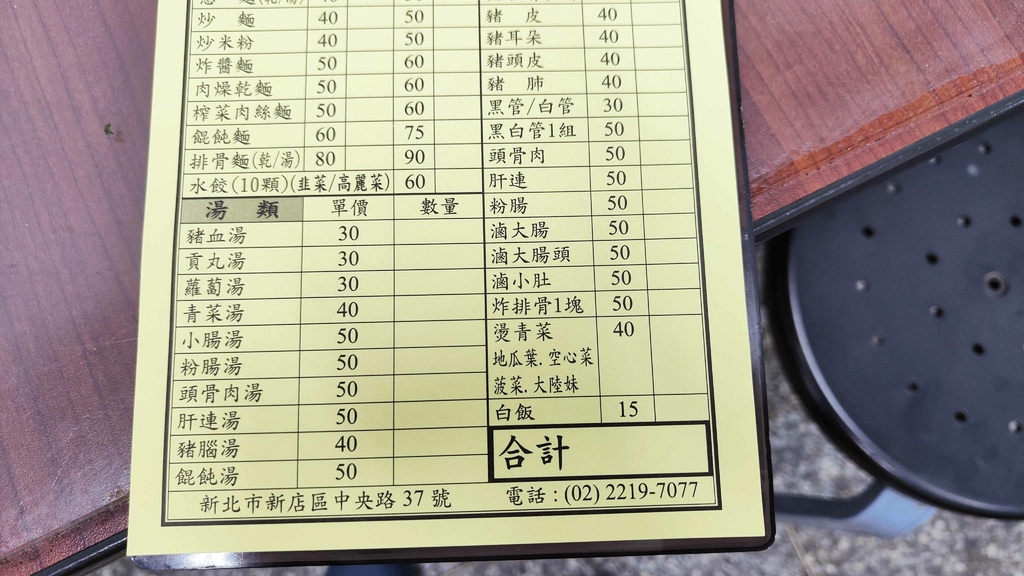 麵(乾/湯) 40
炒 麵 40 50
炒米粉 40 50
炸醬麵 50 60
肉燥乾麵 50 60
榨菜肉絲麵 50 60
餛飩麵 60 75
排骨麵(乾/湯) 80 90
水餃(10顆)(韭菜/高麗菜) 60
湯 類 單價 數量
豬血湯 30
貢丸湯 30
蘿蔔湯 30
青菜湯 40
小腸湯 50
粉腸湯 50
頭骨肉湯 50
肝連湯 50
豬腦湯 40
餛飩湯 50
豬 皮 40
豬耳朵 40
豬頭皮 40
豬 肺 40
黑管/白管 30
黑白管1組 50
頭骨肉 50
肝連 50
粉腸 50
滷大腸 50
滷大腸頭 50
滷小肚 50
炸排骨1塊 50
燙青菜 40
地瓜葉.空心菜
菠菜.大陸妹
白飯 15
合計
新北市新店區中央路 37 號 電話:(02) 2219-7077